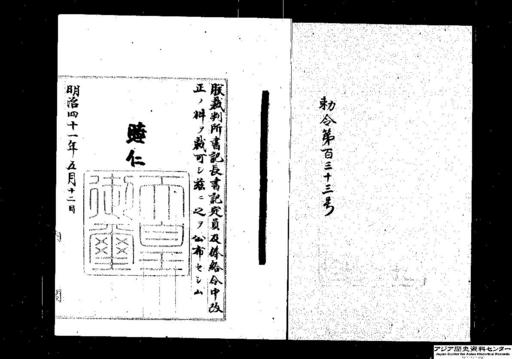 勅令第百三十三号
朕裁判所書記長書記定員及俸給令中改
正ノ件ヲ裁可シ茲ニ之ヲ公布セシム
睦仁
天皇御璽
明治四十一年五月十二日
アジア歴史資料センター
Japan Center for Asian Historical Records